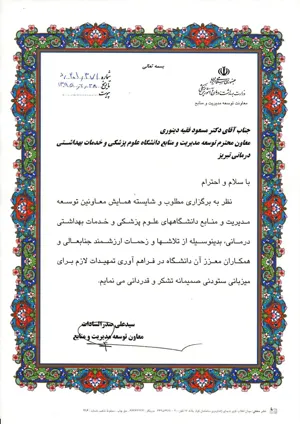 بسمه تعالی
شماره
تاریخ
پیوست
معاونت توسعه مدیریت و منابع
جناب آقای دکتر مسعود فقیه دینوری
معاون محترم توسعه مدیریت و منابع دانشگاه علوم پزشکی و خدمات بهداشتی
درمانی تبریز
با سلام و احترام
نظر به برگزاری مطلوب و شایسته همایش معاونین توسعه
مدیریت و منابع دانشگاههای علوم پزشکی و خدمات بهداشتی
درمانی، بدینوسیله از تلاشها و زحمات ارزشمند جنابعالی و
همکاران معزز آن دانشگاه در فراهم آوری تمهیدات لازم برای
میزبانی ستودنی صمیمانه تشکر و قدردانی می نمایم.
سیدعلی صدرالسادات
معاون توسعه مدیریت و منابع